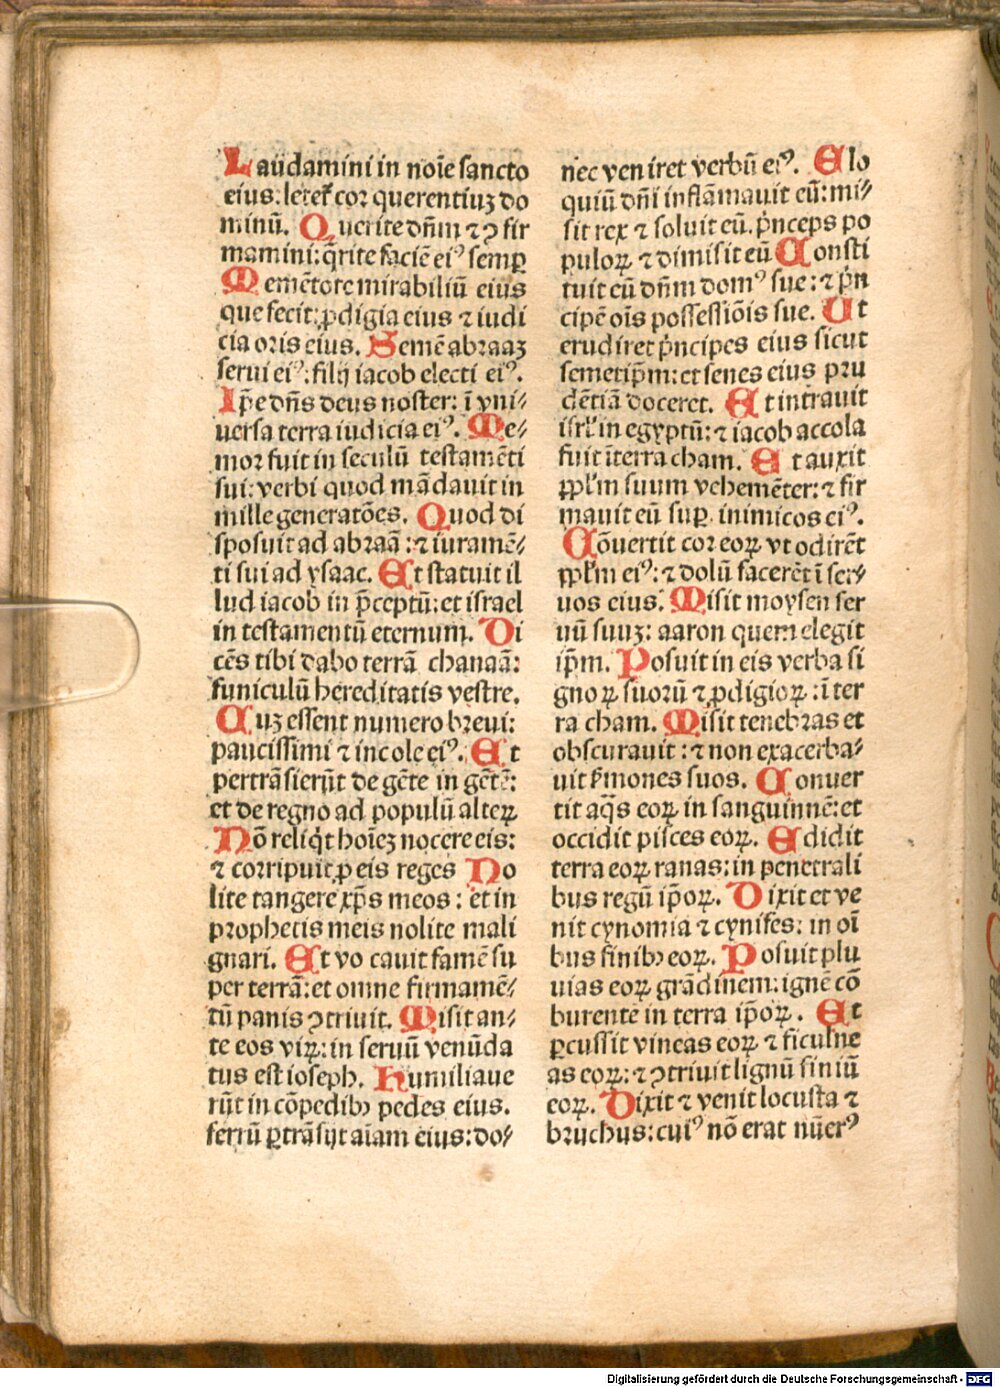 Laudamini in noīe sancto
eius: letet᷑ cor querentiuʒ do
minū. Querite dn̄m ⁊ ꝯfir
mamini: q̄rite faciē eiꝰ semꝑ
Memētote mirabiliū eius
que fecit: ꝓdigia eius ⁊ iudi
cia oris eius. Semē abraaʒ
serui eiꝰ: filij iacob electi eiꝰ.
Ip̄e dn̄s deus noster: ī vni⸗
uersa terra iudicia eiꝰ. Me⸗
mor fuit in seculū testamēti
sui: verbi quod mādauit in
mille generatōes. Quod di
sposuit ad abraā: ⁊ iuramē⸗
ti sui ad ysaac. Et statuit il
lud iacob in p̄ceptū: et israel
in testamentū eternum. Di
cēs tibi dabo terrā chanaā:
funiculū hereditatis vestre.
Cuʒ essent numero breui:
paucissimi ⁊ incole eiꝰ. Et
pertrāsierūt de gēte in gētē:
et de regno ad populū alteꝝ
Nō reliq̇t hoīeʒ nocere eis:
⁊ corripuit ꝓ eis reges No
lite tangere xp̄s meos: et in
prophetis meis nolite mali
gnari. Et vo cauit famē su
per terrā: et omne firmamē⸗
tū panis ꝯtriuit. Misit an⸗
te eos viꝝ: in seruū venūda
tus est ioseph. Humiliaue
rūt in cōpedibꝫ pedes eius.
ferrū ꝑtrāsijt aīam eius: do⸗
nec ven iret verbū eiꝰ. Elo
quiū dn̄i inflāmauit eū: mi⸗
sit rex ⁊ soluit eū. p̄nceps po
puloꝝ ⁊ dimisit eū Consti
tuit eū dn̄m domꝰ sue: ⁊ p̄n
cipē oīs possessiōis sue. Ut
erudiret p̄ncipes eius sicut
semetip̄m: et senes eius pru
dētiā doceret. Et intrauit
isrl̄ in egyptū: ⁊ iacob accola
fuit ī terra cham. Et auxit
ppl̄m suum vehemēter: ⁊ fir
mauit eū suꝑ inimicos eiꝰ.
Cōuertit cor eoꝝ vt odirēt
ppl̄m eiꝰ: ⁊ dolū facerēt ī ser⸗
uos eius. Misit moysen ser
uū suuʒ: aaron quem elegit
ip̄m. Posuit in eis verba si
gnoꝝ suorū ⁊ ꝓdigioꝝ: ī ter
ra cham. Misit tenebras et
obscurauit: ⁊ non exacerba⸗
uit s̄mones suos. Conuer
tit aq̄s eoꝝ in sanguinnē: et
occidit pisces eoꝝ. Edidit
terra eoꝝ ranas: in penetrali
bus regū ip̄oꝝ. Dixit et ve
nit cynomia ⁊ cynifes: in oī
bus finibꝫ eoꝝ. Posuit plu
uias eoꝝ grādinem: ignē cō
burente in terra ip̄oꝝ. Et
ꝑcussit vineas eoꝝ ⁊ ficulne
as eoꝝ: ⁊ ꝯtriuit lignū finiū
eoꝝ. Dixit ⁊ venit locusta ⁊
bruchus: cuiꝰ nō erat nūerꝰ
Digitalisierung gefördert durch die Deutsche Forschungsgemeinschaft - DFG